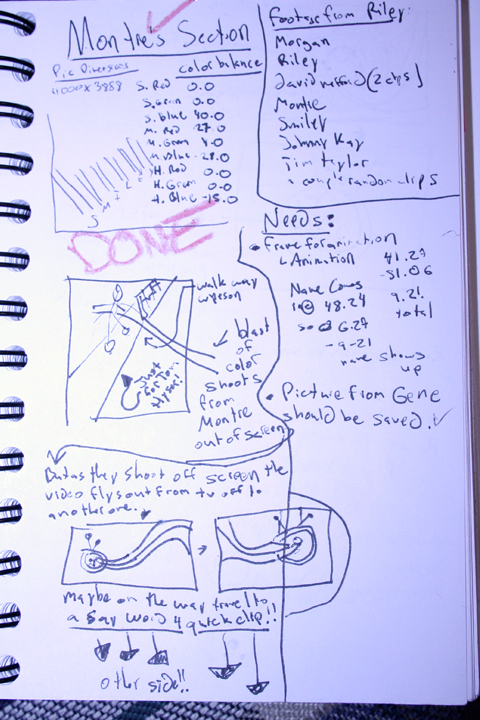 Montre's Section
Pic Dimensions
4000x3888
color balance
S. Red 0.0
S. Green 0.0
S. Blue 40.0
M. Red 27.0
M. Green 4.0
M. Blue -28.0
H. Red 0.0
H. Green 0.0
H. Blue -15.0
DONE
Footage from Riley:
Morgan
Riley
David (2 clips)
Montre
Smiley
Johnny Kay
Tim Taylor
couple random clips
Needs:
Frame for animation
Animation
41.27
-51.06
9.21
total
Name Comes
48.24
so 6.27
-9-21
name shows
up
Picture from Gene
should be saved.
walk way
blast
of
color
shoots
from
Montre
out of screen
Just
for Tom
But as they shoot off screen the
video flys out from tv off to
another one.
Maybe on the way travel to
a say word 4 quick clip!!
other side!!